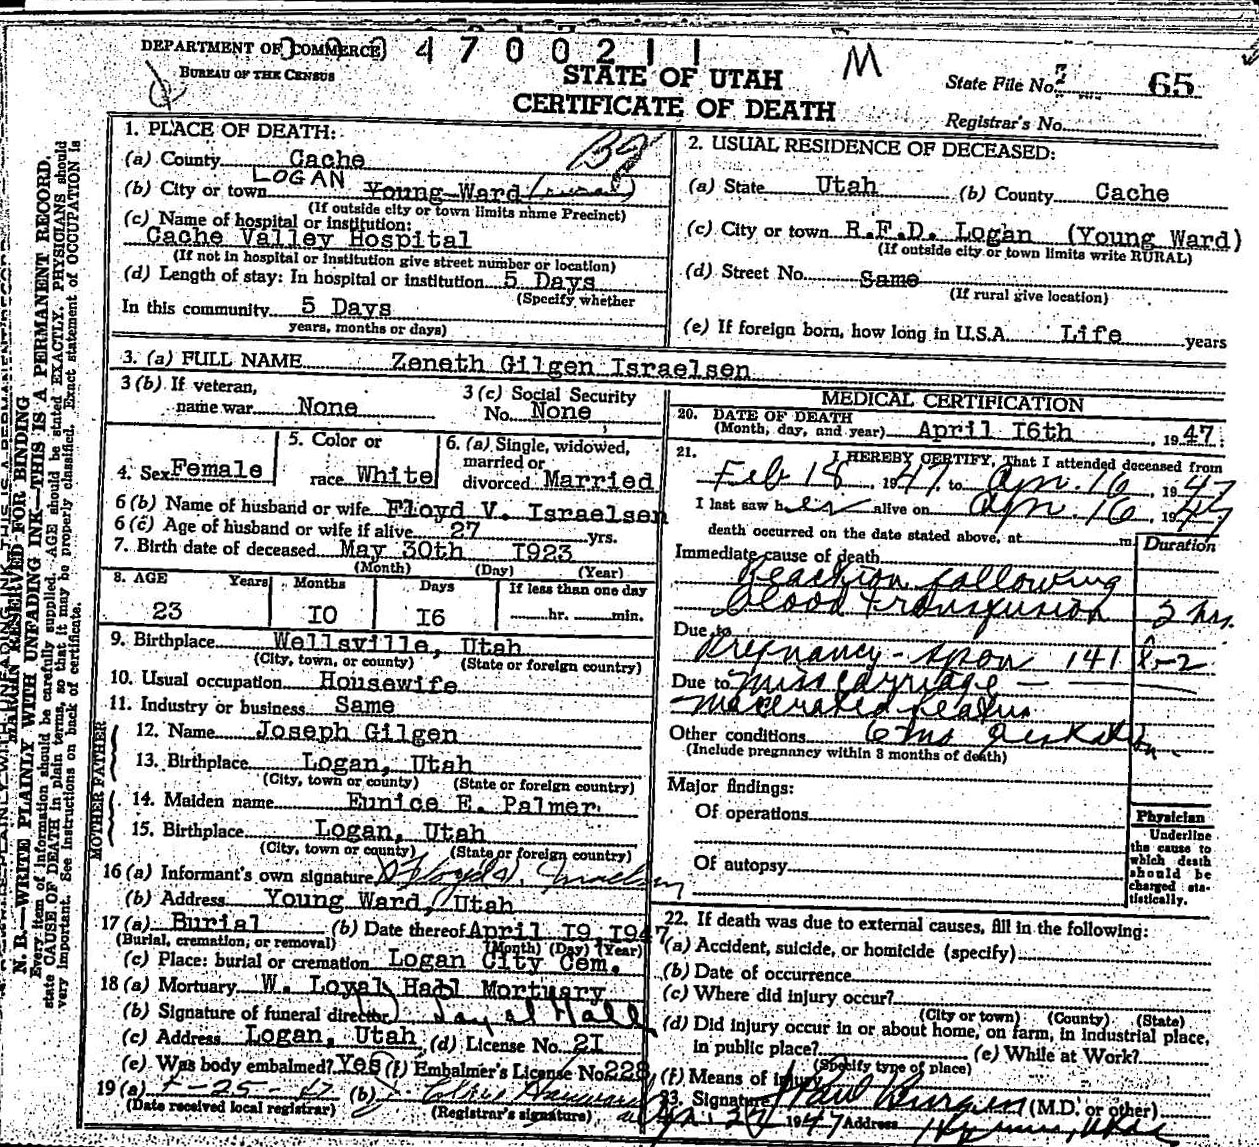 DEPARTMENT OF COMMERCE
BUREAU OF THE CENSUS
4 7 0 0 2 1 1
M
STATE OF UTAH
CERTIFICATE OF DEATH
State File No. 65
Registrar's No.
MARGIN RESERVED FOR BINDING
N. B.—WRITE PLAINLY WITH UNFADING INK—THIS IS A PERMANENT RECORD.
Every item of information should be carefully supplied. AGE should be stated EXACTLY. PHYSICIANS should
state CAUSE OF DEATH in plain terms, so that it may be properly classified. Exact statement of OCCUPATION is
very important. See instructions on back of certificate.
1. PLACE OF DEATH:
(a) County Cache
LOGAN
(b) City or town Young Ward (rural)
(If outside city or town limits name Precinct)
(c) Name of hospital or institution:
Cache Valley Hospital
(If not in hospital or institution give street number or location)
(d) Length of stay: In hospital or institution 5 Days
(Specify whether
In this community 5 Days
years, months or days)
2. USUAL RESIDENCE OF DECEASED:
(a) State Utah (b) County Cache
(c) City or town R.F.D. Logan (Young Ward)
(If outside city or town limits write RURAL)
(d) Street No. Same
(If rural give location)
(e) If foreign born, how long in U.S.A. Life years
3. (a) FULL NAME Zeneth Gilgen Israelsen
3 (b) If veteran, name war None
3 (c) Social Security No. None
4. Sex Female
5. Color or race White
6. (a) Single, widowed, married or divorced Married
6 (b) Name of husband or wife Floyd V. Israelsen
6 (c) Age of husband or wife if alive 27 yrs.
7. Birth date of deceased May 30th 1923
(Month) (Day) (Year)
8. AGE Years Months Days If less than one day
23 I0 I6 hr. min.
9. Birthplace Wellsville, Utah
(City, town, or county) (State or foreign country)
10. Usual occupation Housewife
11. Industry or business Same
FATHER
12. Name Joseph Gilgen
13. Birthplace Logan, Utah
(City, town or county) (State or foreign country)
MOTHER
14. Maiden name Eunice E. Palmer
15. Birthplace Logan, Utah
(City, town or county) (State or foreign country)
16 (a) Informant's own signature Floyd
(b) Address Young Ward, Utah
17 (a) Burial (b) Date thereof April I9 I947
(Burial, cremation, or removal) (Month) (Day) (Year)
(c) Place: burial or cremation Logan City Cem.
18 (a) Mortuary W. Loyal Hall Mortuary
(b) Signature of funeral director Loyal Hall
(c) Address Logan, Utah (d) License No. 2I
(e) Was body embalmed? Yes (f) Embalmer's License No. 228
19 (a) 4-25-47 (b)
(Date received local registrar) (Registrar's signature)
MEDICAL CERTIFICATION
20. DATE OF DEATH
(Month, day, and year) April I6th, 1947.
21. I HEREBY CERTIFY, That I attended deceased from
Feb 18, 1947, to Apr. 16, 1947
I last saw her alive on Apr. 16, 1947
death occurred on the date stated above, at m.
Duration
Immediate cause of death
Reaction following
blood transfusion 2 hrs.
Due to
Pregnancy - spon 141 b-2
Due to Miscarriage —
Macerated
Other conditions 6 mo
(Include pregnancy within 3 months of death)
Major findings:
Of operations
Of autopsy
Physician
Underline the cause to which death should be charged statistically.
22. If death was due to external causes, fill in the following:
(a) Accident, suicide, or homicide (specify)
(b) Date of occurrence
(c) Where did injury occur?
(City or town) (County) (State)
(d) Did injury occur in or about home, on farm, in industrial place,
in public place? (e) While at Work?
(Specify type of place)
(f) Means of injury
23. Signature (M.D. or other)
1947 Address Hyrum, Utah